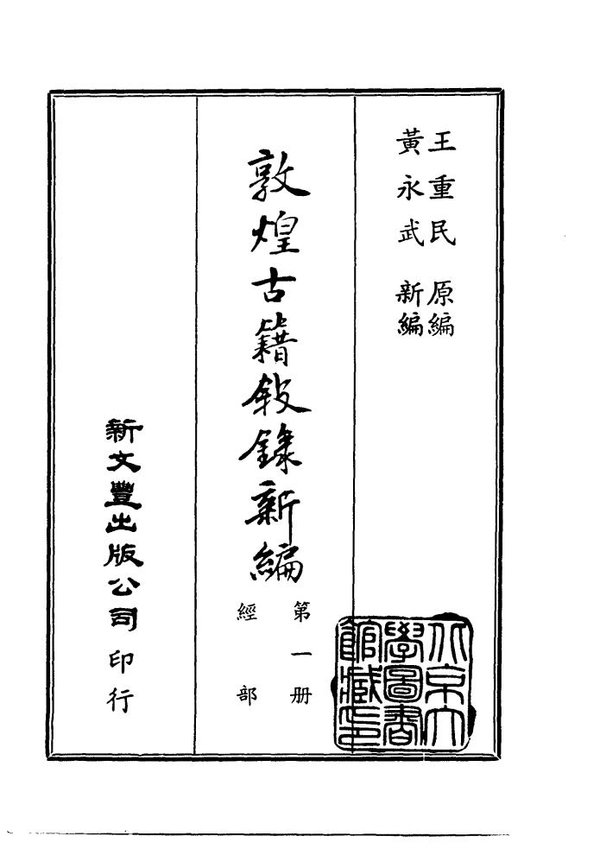 王重民 原編
黃永武 新編
敦煌古籍敘錄新編
第一册
經部
新文豐出版公司印行
北京大
學圖書
館藏印